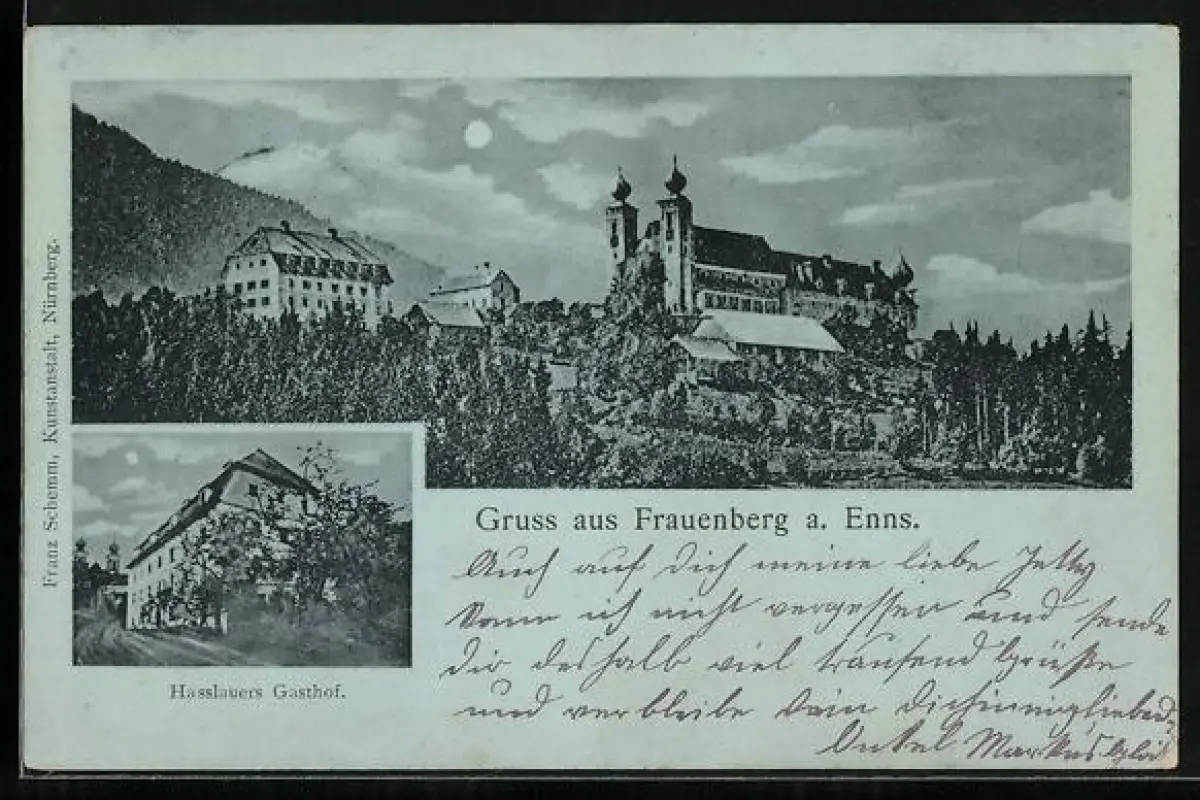 Franz Schemm, Kunstanstalt, Nürnberg.
Gruss aus Frauenberg a. Enns.
Auch auf dich meine liebe Jetty
kann ich nicht vergessen und sende
dir deshalb viel tausend Grüße
und verbleibe dein dichinnigliebend
Onkel Markus
Hasslauers Gasthof.